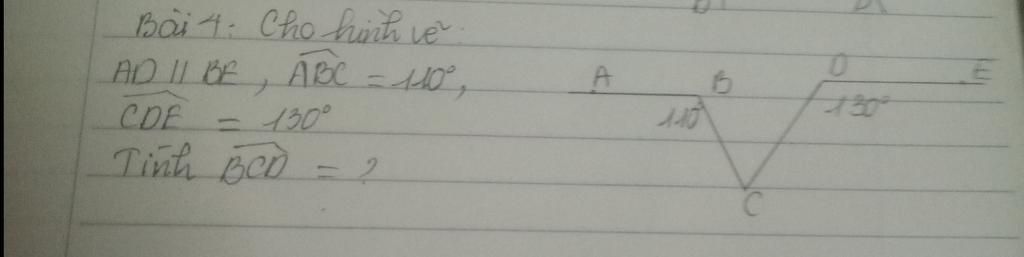 Bài 4: Cho hình vẽ.
AD // BE, ABC = 110°,
CDE = 130°
Tính BCD = ?
A B D E
110° 130°
C